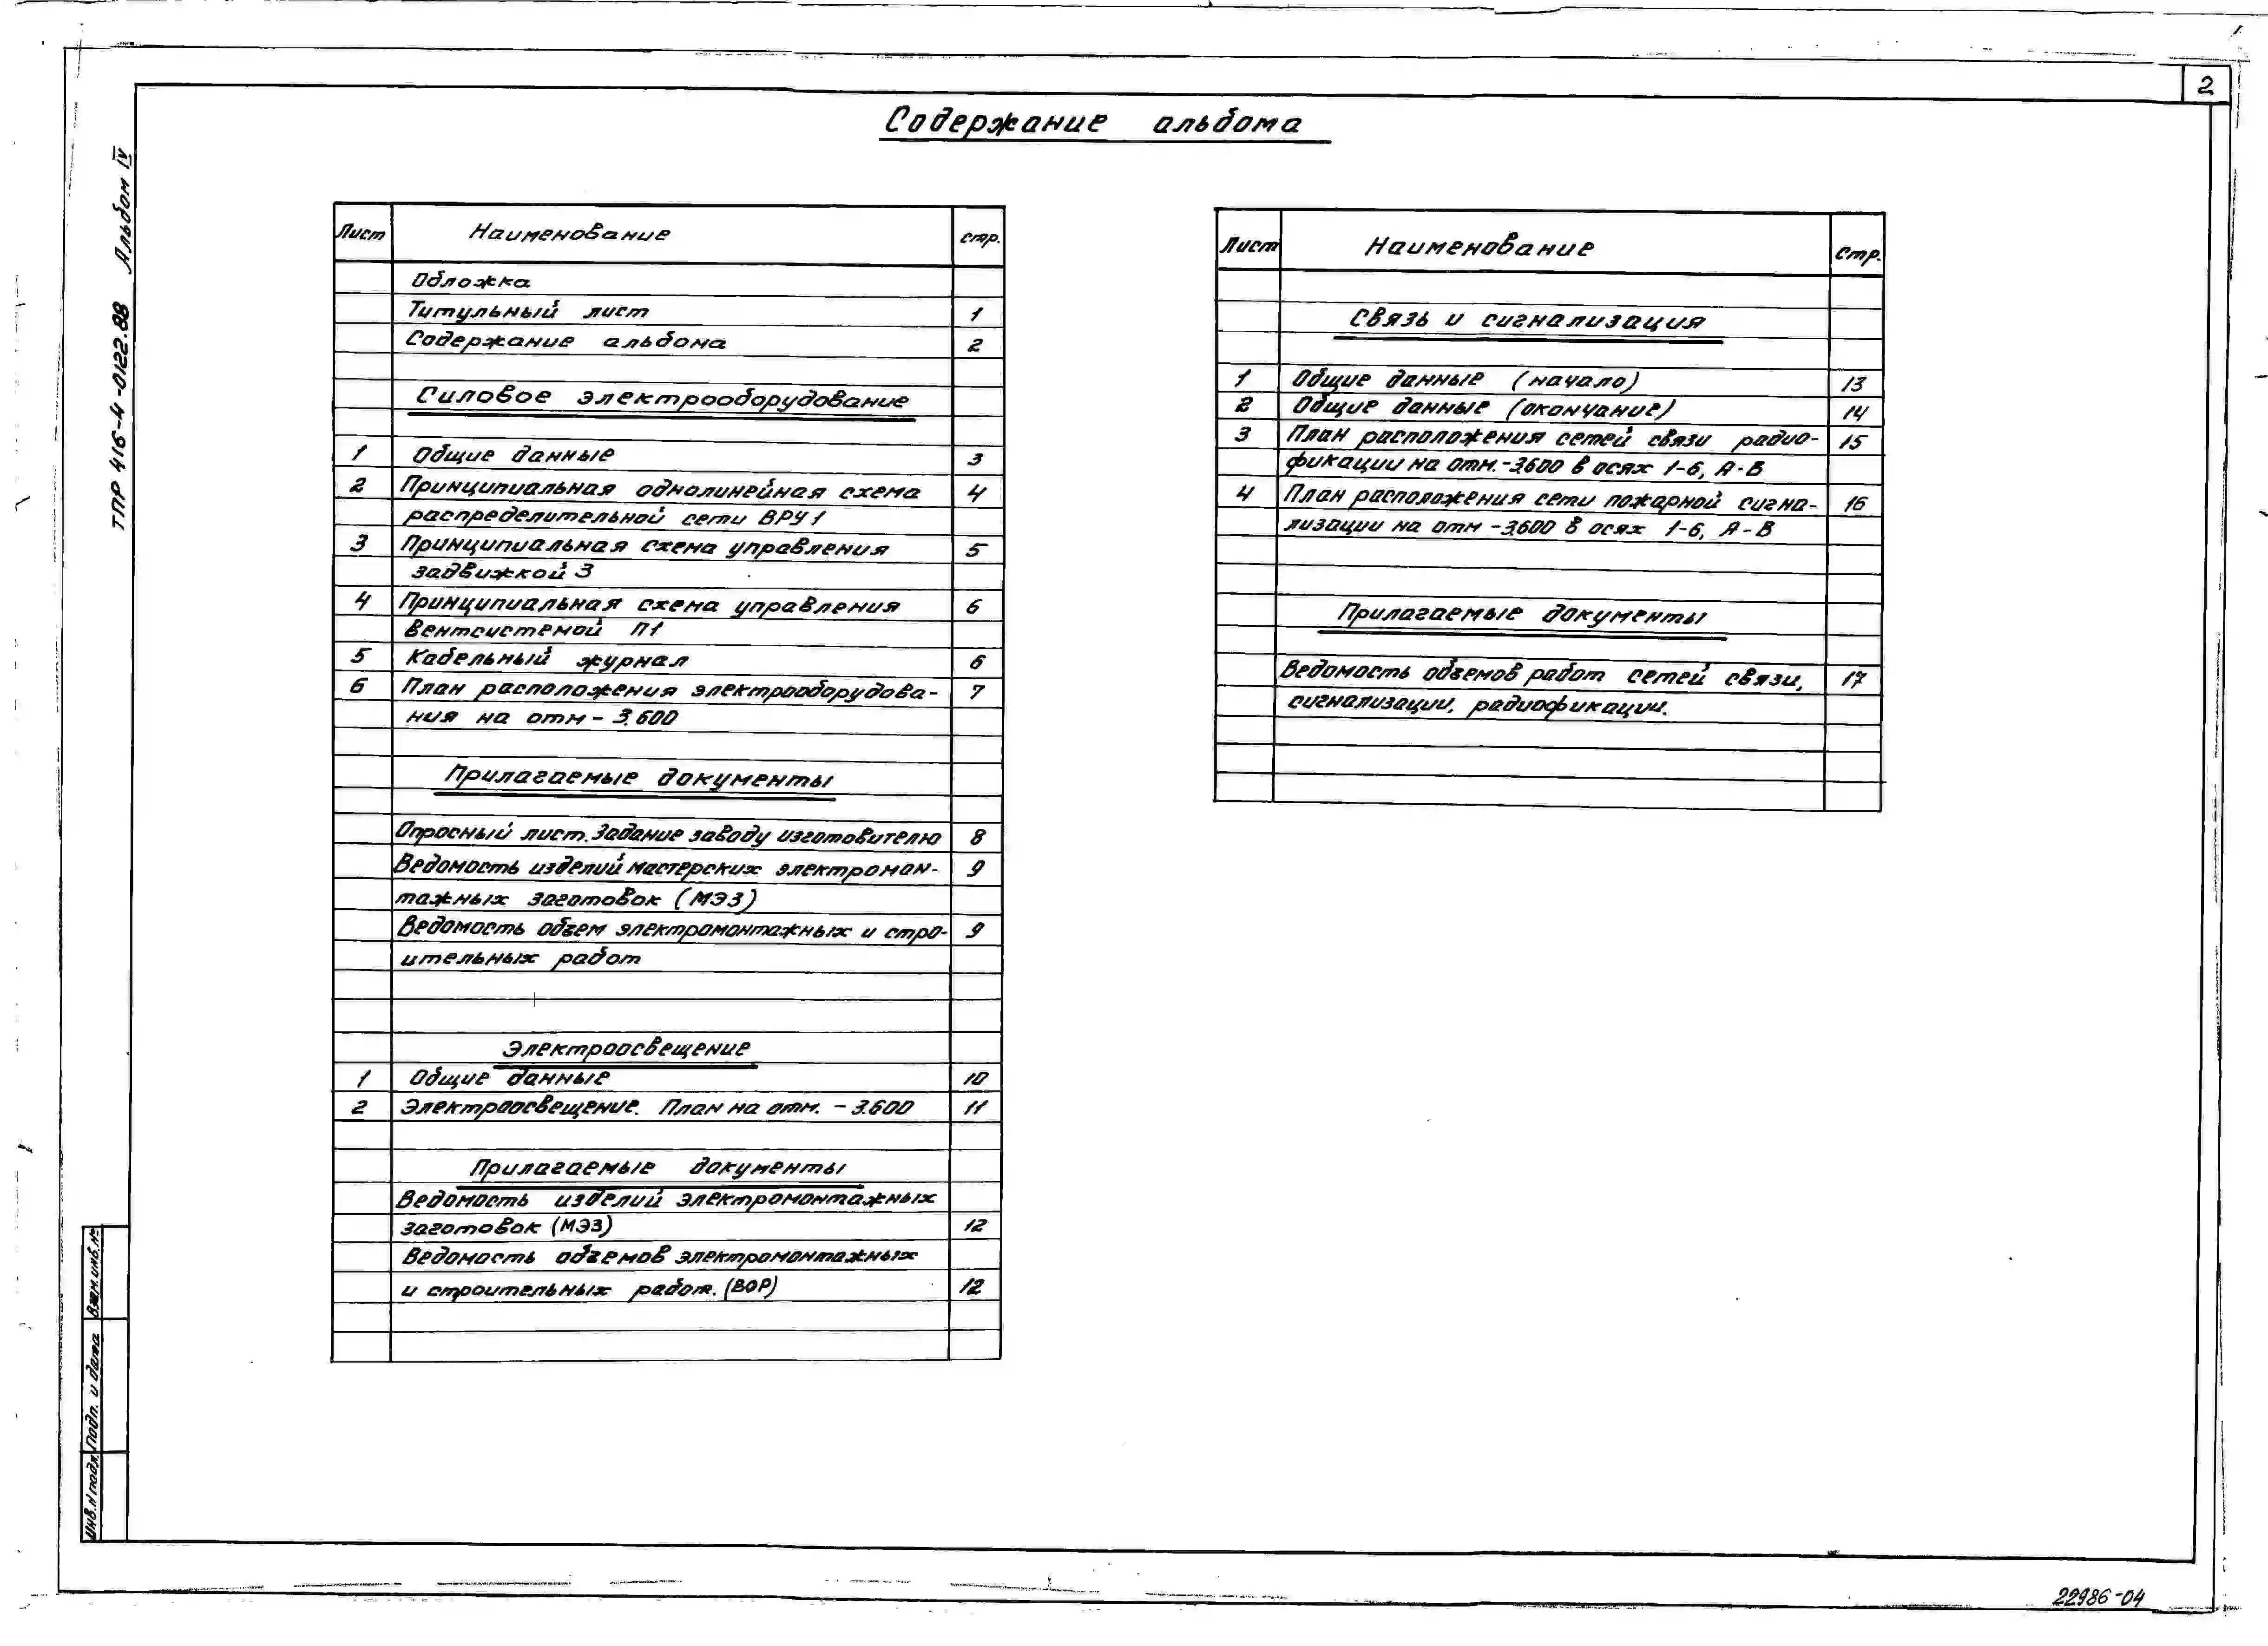 2
Содержание альбома
ТПР 416-4-0122.88 Альбом IV
Лист Наименование стр.
Обложка
Титульный лист 1
Содержание альбома 2
Силовое электрооборудование
1 Общие данные 3
2 Принципиальная однолинейная схема 4
распределительной сети ВРУ1
3 Принципиальная схема управления 5
задвижкой 3
4 Принципиальная схема управления 6
вентсистемой П1
5 Кабельный журнал 6
6 План расположения электрооборудова- 7
ния на отм - 3.600
Прилагаемые документы
Опросный лист. Задание заводу изготовителю 8
Ведомость изделий мастерских электромон- 9
тажных заготовок (МЭЗ)
Ведомость объем электромонтажных и стро- 9
ительных работ
Электроосвещение
1 Общие данные 10
2 Электроосвещение. План на отм. - 3.600 11
Прилагаемые документы
Ведомость изделий электромонтажных
заготовок (МЭЗ) 12
Ведомость объемов электромонтажных
и строительных работ. (ВОР) 12
Лист Наименование Стр.
Связь и сигнализация
1 Общие данные (начало) 13
2 Общие данные (окончание) 14
3 План расположения сетей связи радио- 15
фикации на отм.-3.600 в осях 1-6, А-В
4 План расположения сети пожарной сигна- 16
лизации на отм -3.600 в осях 1-6, А-В
Прилагаемые документы
Ведомость объемов работ сетей связи, 17
сигнализации, радиофикации.
Инв.N подл. Подп. и дата Взам.инв.№
22986-04